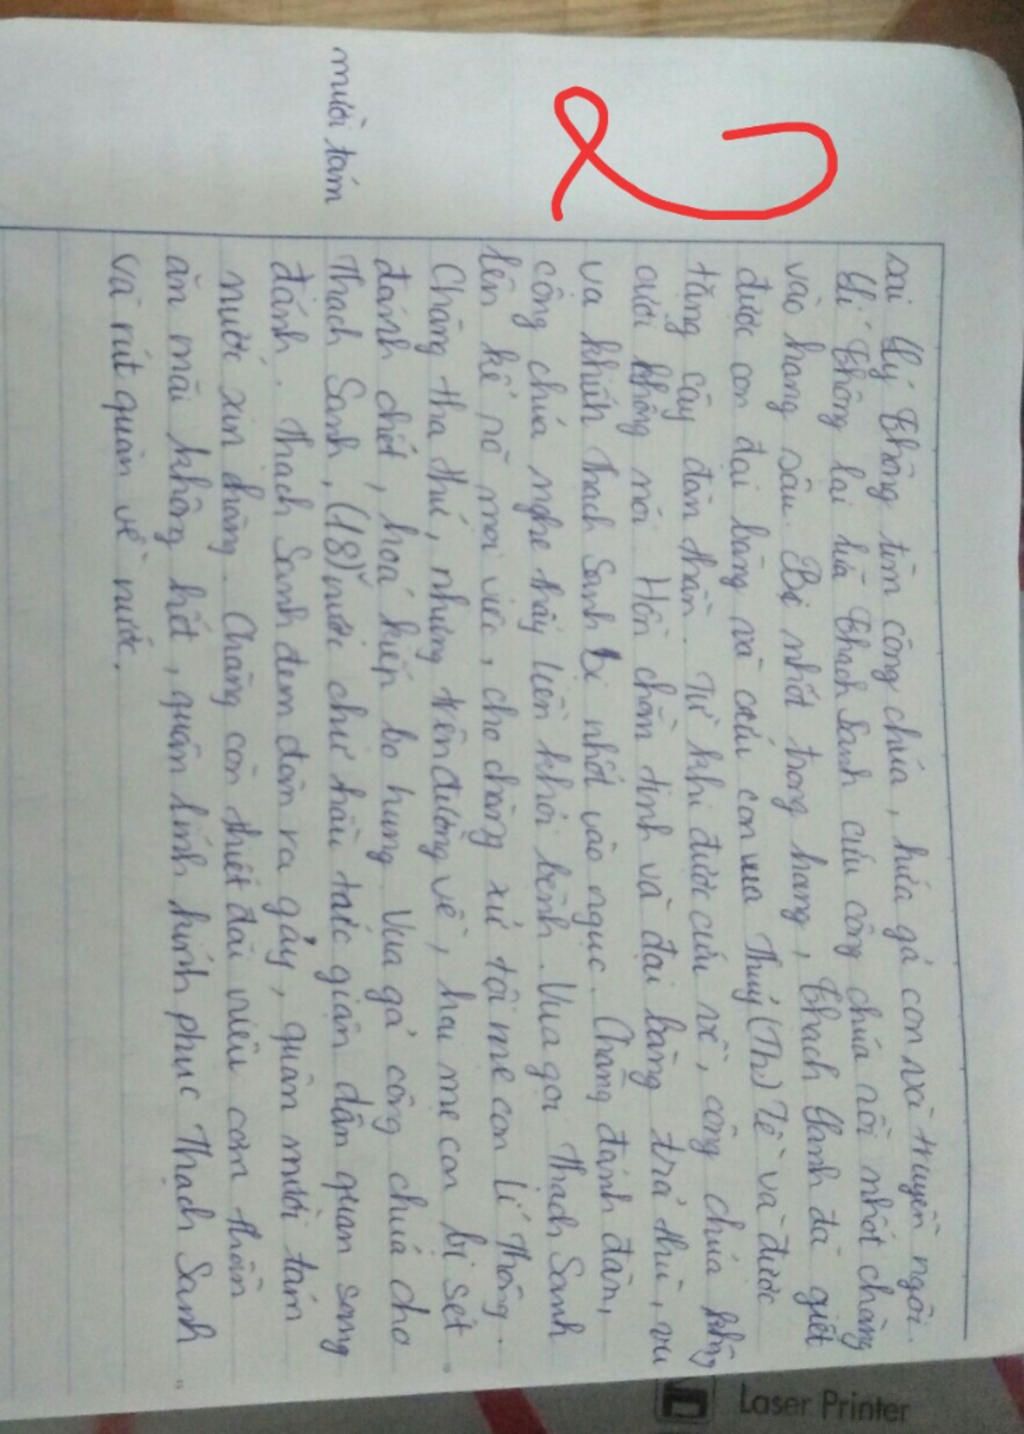 2
mười tám
sai Lý Thông tìm công chúa, hứa gả con và truyền ngôi.
Lí Thông lại lừa Thạch Sanh cứu công chúa rồi nhốt chàng
vào hang sâu. Bị nhốt trong hang, Thạch Sanh đã giết
được con đại bàng và cứu con vua Thuỷ (Th) Tề và được
tặng cây đàn thần. Từ khi được cứu về, công chúa không
cười không nói. Hồn chằn tinh và đại bàng trả thù, vu
va khiến Thạch Sanh bị nhốt vào ngục. Chàng đánh đàn,
công chúa nghe thấy liền khỏi bệnh. Vua gọi Thạch Sanh
lên kể rõ mọi việc, cho chàng xử tội mẹ con Lí Thông.
Chàng tha thứ, nhưng trên đường về, hai mẹ con bị sét
đánh chết, hoá kiếp bọ hung. Vua gả công chúa cho
Thạch Sanh, (18) nước chư hầu tức giận dẫn quan sang
đánh. Thạch Sanh đem đàn ra gảy, quân mười tám
nước xin hàng. Chàng còn thiết đãi niêu cơm thần
ăn mãi không hết, quân lính kính phục Thạch Sanh
và rút quân về nước.
Laser Printer